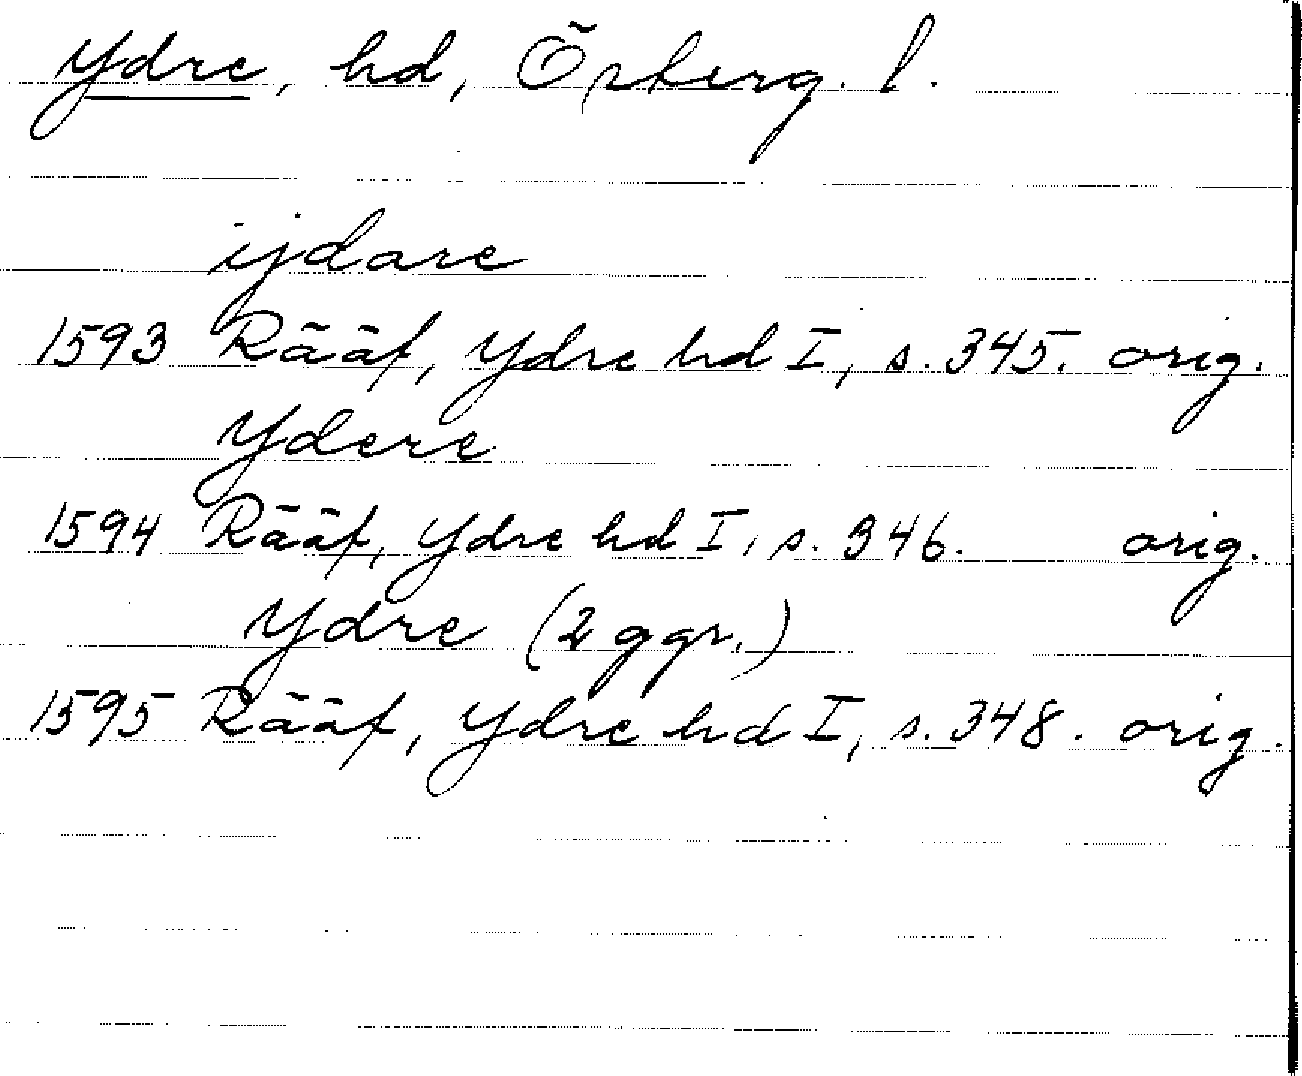 Ydre, hd, Örberg. l.
ijdare
1593 Rääf, Ydre hd I, s. 345. orig.
Ydere
1594 Rääf, Ydre hd I, s. 346. orig.
Ydre (2 ggr.)
1595 Rääf, Ydre hd I, s. 348. orig.